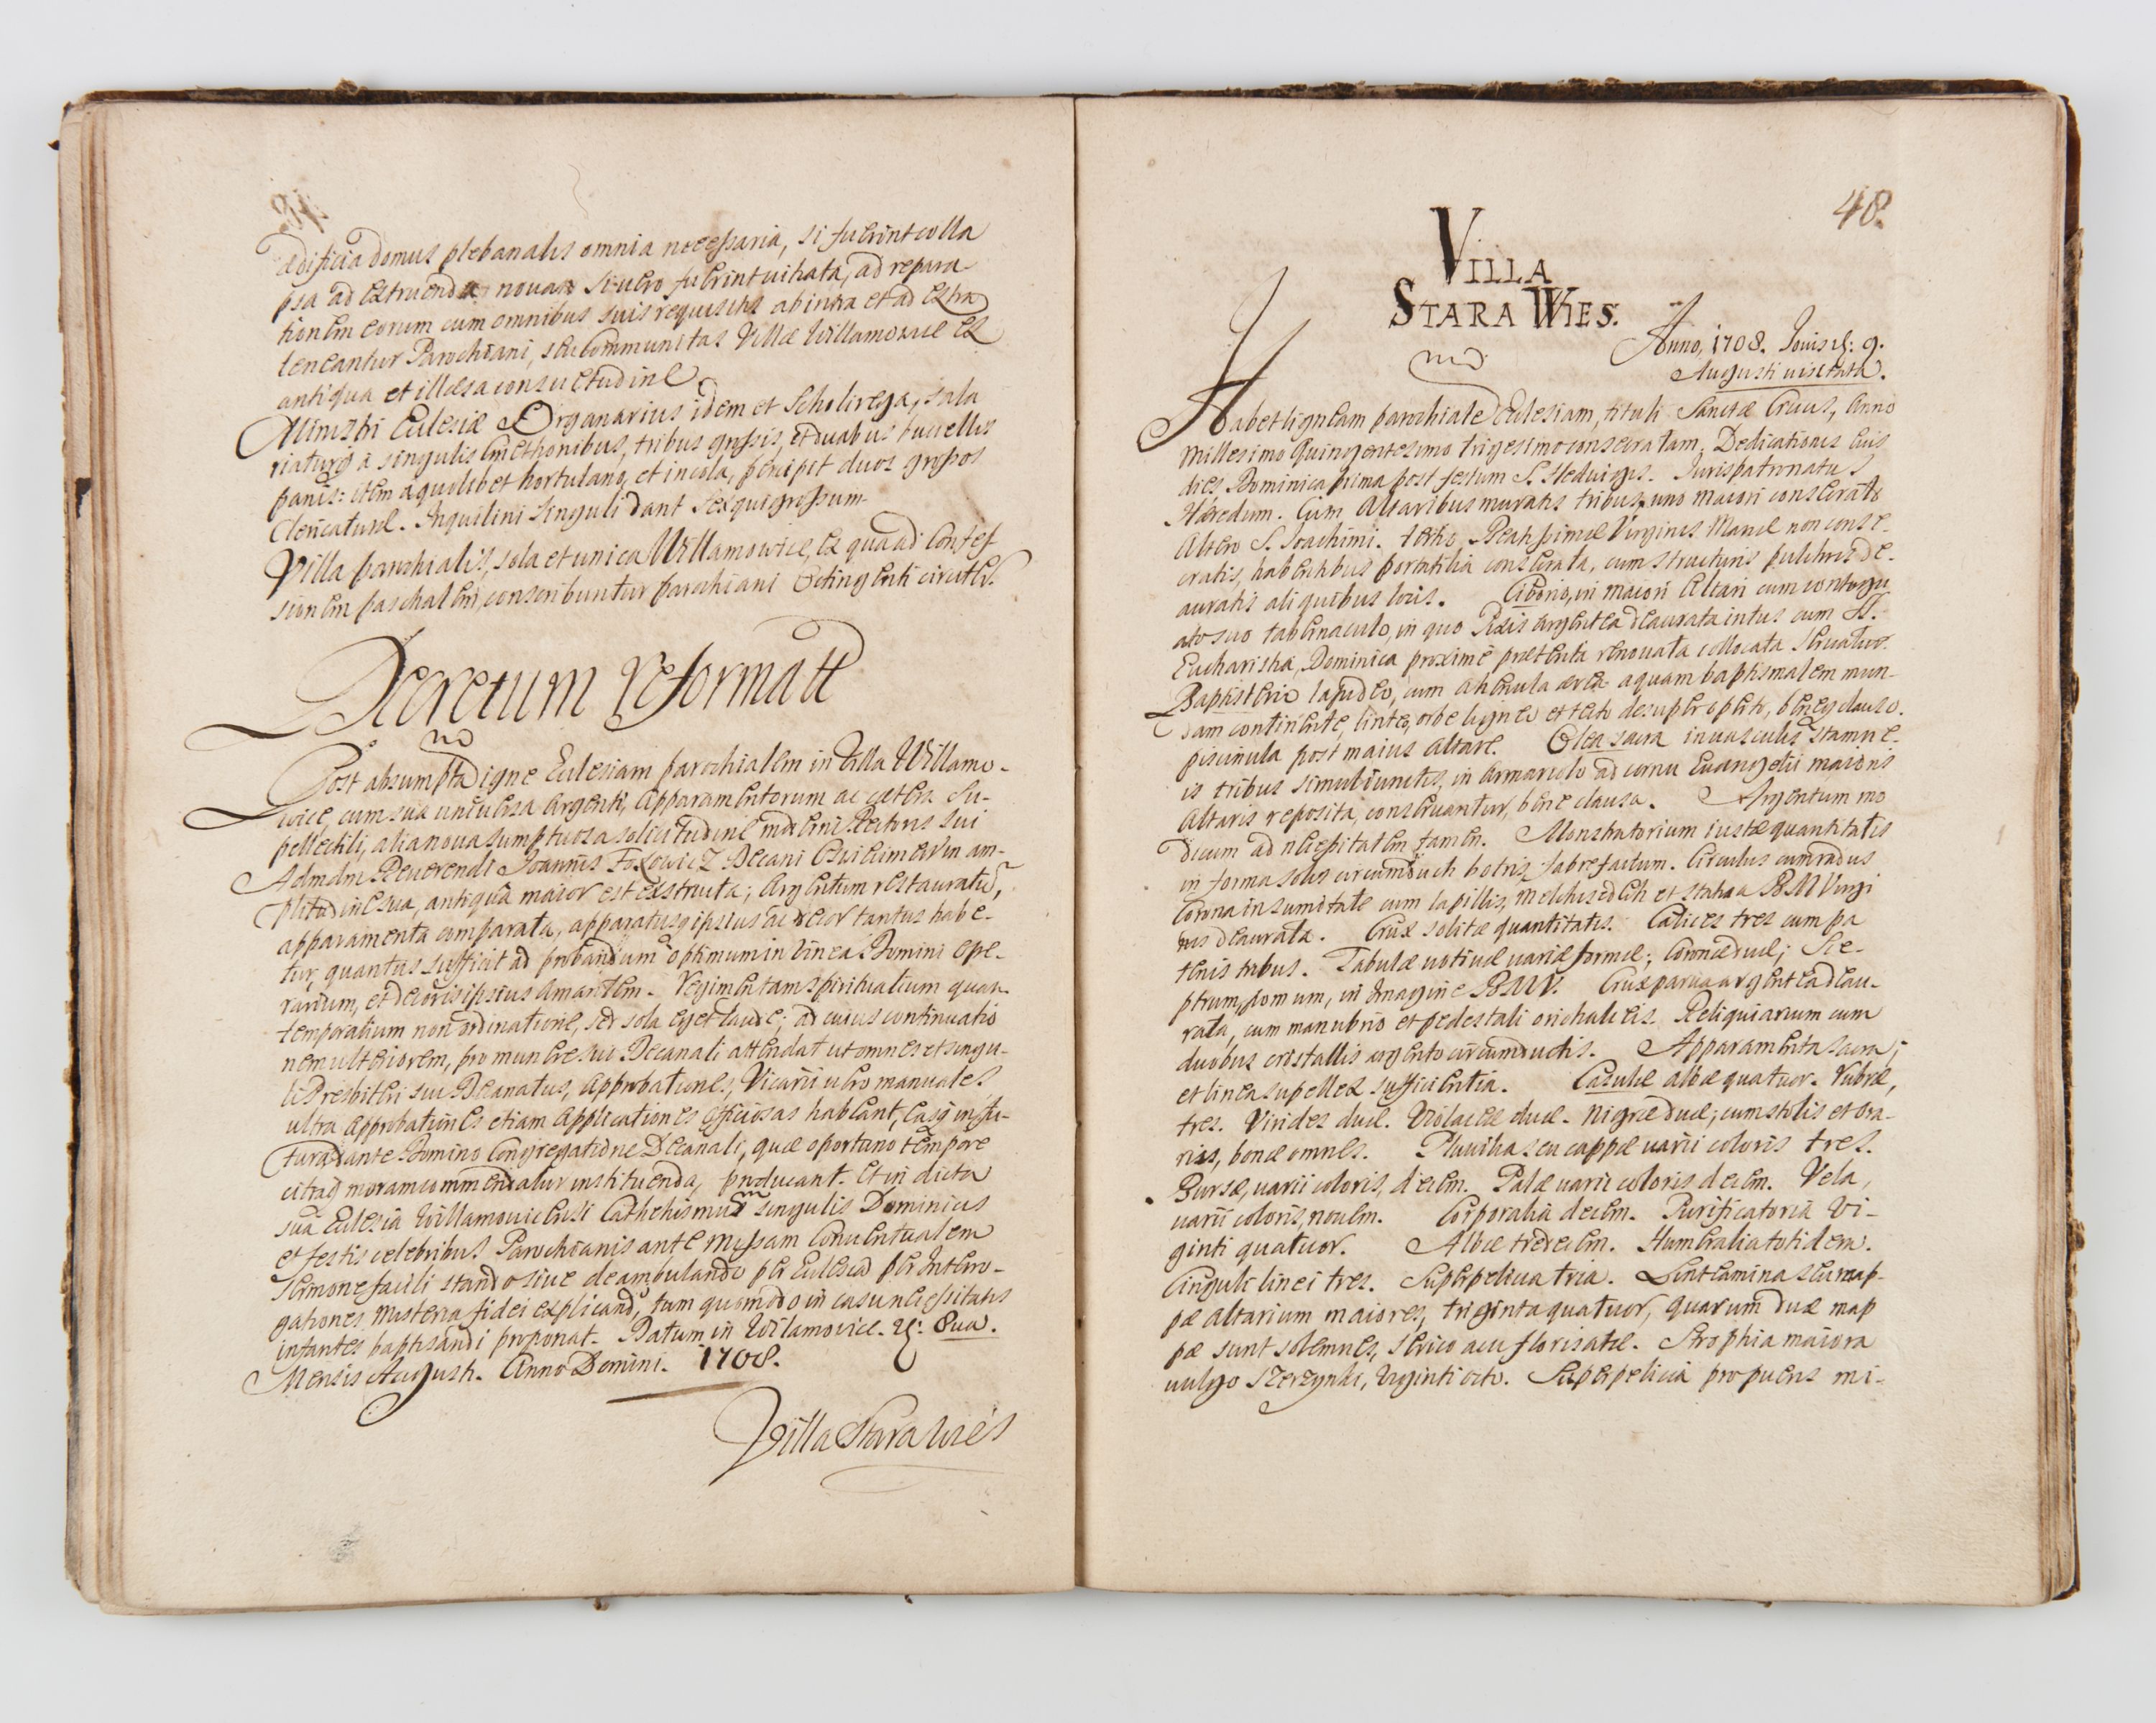 ædificia domus plebanalis omnia necessaria, si fuerint colla
psa ad extruenda noua si uero fuerint uitiata, ad repara
tionem eorum cum omnibus suis requisitis ab intra et ad extra
teneantur Parochiani, seu Communitas Villæ Willamowice ex
antiqua et illæsa consuetudine.
Ministri Eclesiæ Organarius idem et Scholirega, sala
riatur à singulis Cmethonibus, tribus grossis, et duabus buccellis
panis: item a quolibet hortulano, et incola, percipit duos grossos
Clericaturæ. Inquilini singuli dant sesquigrossum.
Villa parochialis, sola et unica Willamowice, ex qua ad Confes
sionem paschalem, conscribuntur parochiani Octingenti circiter.
Decretum reformatt
Post absumpta igne Eclesiam parochialem in Villa Willamo-
wice, cum sua uniuersa argenti, apparamentorum ac cætera su-
pellectili, alia noua sumptuosa solicitudine moderni Rectoris sui
Admdm Reuerendi Joannis Foxowicz Decani Osuiecimen in am-
plitudine sua, antiqua maior est exstructa; argentum restauratu,
apparamenta comparata, apparatusq ipsius ac decor tantus habe-
tur, quantus sufficit ad probandum optimum in uinea Domini ope-
rarium, et decoris ipsius amantem. Regimen tam spiritualium quam
temporalium non ordinatione, sed sola eget laude; ad cuius continuatio
nem ulteriorem, pro munere sui Decanali attendat ut omnes et singu-
li Presbiteri sui Decanatus, approbationes, Vicarii uero manuales
ultra approbationes etiam applicationes officiosas habeant, easq in fu-
tura dante Domino Congregatione Decanali, quæ oportuno tempore
citraq moram commendatur instituenda, producant. Et in dicta
sua Eclesia Willamouicensi Cathehismum singulis Dominicis
et festis celebribus Parochianis ante Missam Conuentualem
sermone facili stando siue deambulando per Eclesia per Interro-
gationes misteria fidei explicand, tum quomodo in casu necessitatis
infantes baptisandi proponat. Datum in Wilamowice. d: 8ua.
Mensis Augusti. Anno Domini. 1708.
Villa Stara Wies
48.
VILLA
STARA WIES.
Anno, 1708. Jouis d: 9.
Augusti uisitata.
Habet ligneam parochiale Eclesiam, tituli Sanctæ Crucis, Anno
Millesimo Quingentesimo trigesimo consecratam. Dedicationis eius
dies, Dominica prima post festum S. Heduigis. Jurispatronatus
Hæredum. Cum Altaribus muratis tribus, uno maiori consecrato
Altero S. Joachimi. tertio Beatissimæ Virginis Mariæ non conse-
cratis, habentibus portatilia consecrata, cum structuris pulchris de-
auratis aliquibus locis. Ciborio, in maiori Altari cum contigu
ato suo tabernaculo, in quo Pixis argentea deaurata intus cum SS.
Eucharistia, Dominica proxime præterita renouata collocata seruatur.
Baptisterio lapideo, cum ahenula ærea aquam baptismalem mun-
dam continente, linteo, orbe ligneo et tecto desuper operto, beneq clauso.
piscinula post maius altare. Olea sacra in uasculis stamne-
is tribus simul iunctis, in Armariolo ad cornu Euangelii maioris
Altaris reposita, conseruantur, bene clausa. Argentum mo
dicum ad necessitatem tamen. Monstratorium iustæ quantitatis
in forma solis circumducti botris fabrefactum. Circulus cum radiis
Corona in sumitate cum lapillis, Melchisedech et statua B M Virgi
nis deaurata. Crux solitæ quantitatis. Calices tres cum pa
tenis tribus. Tabulæ uotiuæ uariæ formæ; Coronæ duæ; Sce-
ptrum, pomum, in Imagine B.M.V. Crux parua argentea deau-
rata, cum manubrio et pedestali orichalceis. Reliquiarium cum
duobus cristallis argento circumductis. Apparamenta sacra;
et linea supellex sufficientia. Casulæ albæ quatuor. Rubræ,
tres. Virides duæ. Violaceæ duæ. Nigræ duæ; cum stolis et ora-
riis, bonæ omnes. Pluuialia seu cappæ uarii coloris tres.
Bursæ, uarii coloris, decem. Palæ uarii coloris decem. Vela,
uarii coloris, nouem. Corporalia decem. Purificatoria Vi-
ginti quatuor. Albæ tredecim. Humeralia totidem.
Cinguli linei tres. Superpelicia tria. Linteamina seu map-
pæ altarium maiores, triginta quatuor, quarum duæ map
pæ sunt solemnes, serico acu florisatæ. Strophia maiora
uulgo szerzynki, uiginti octo. Superpelicia pro pueris mi-